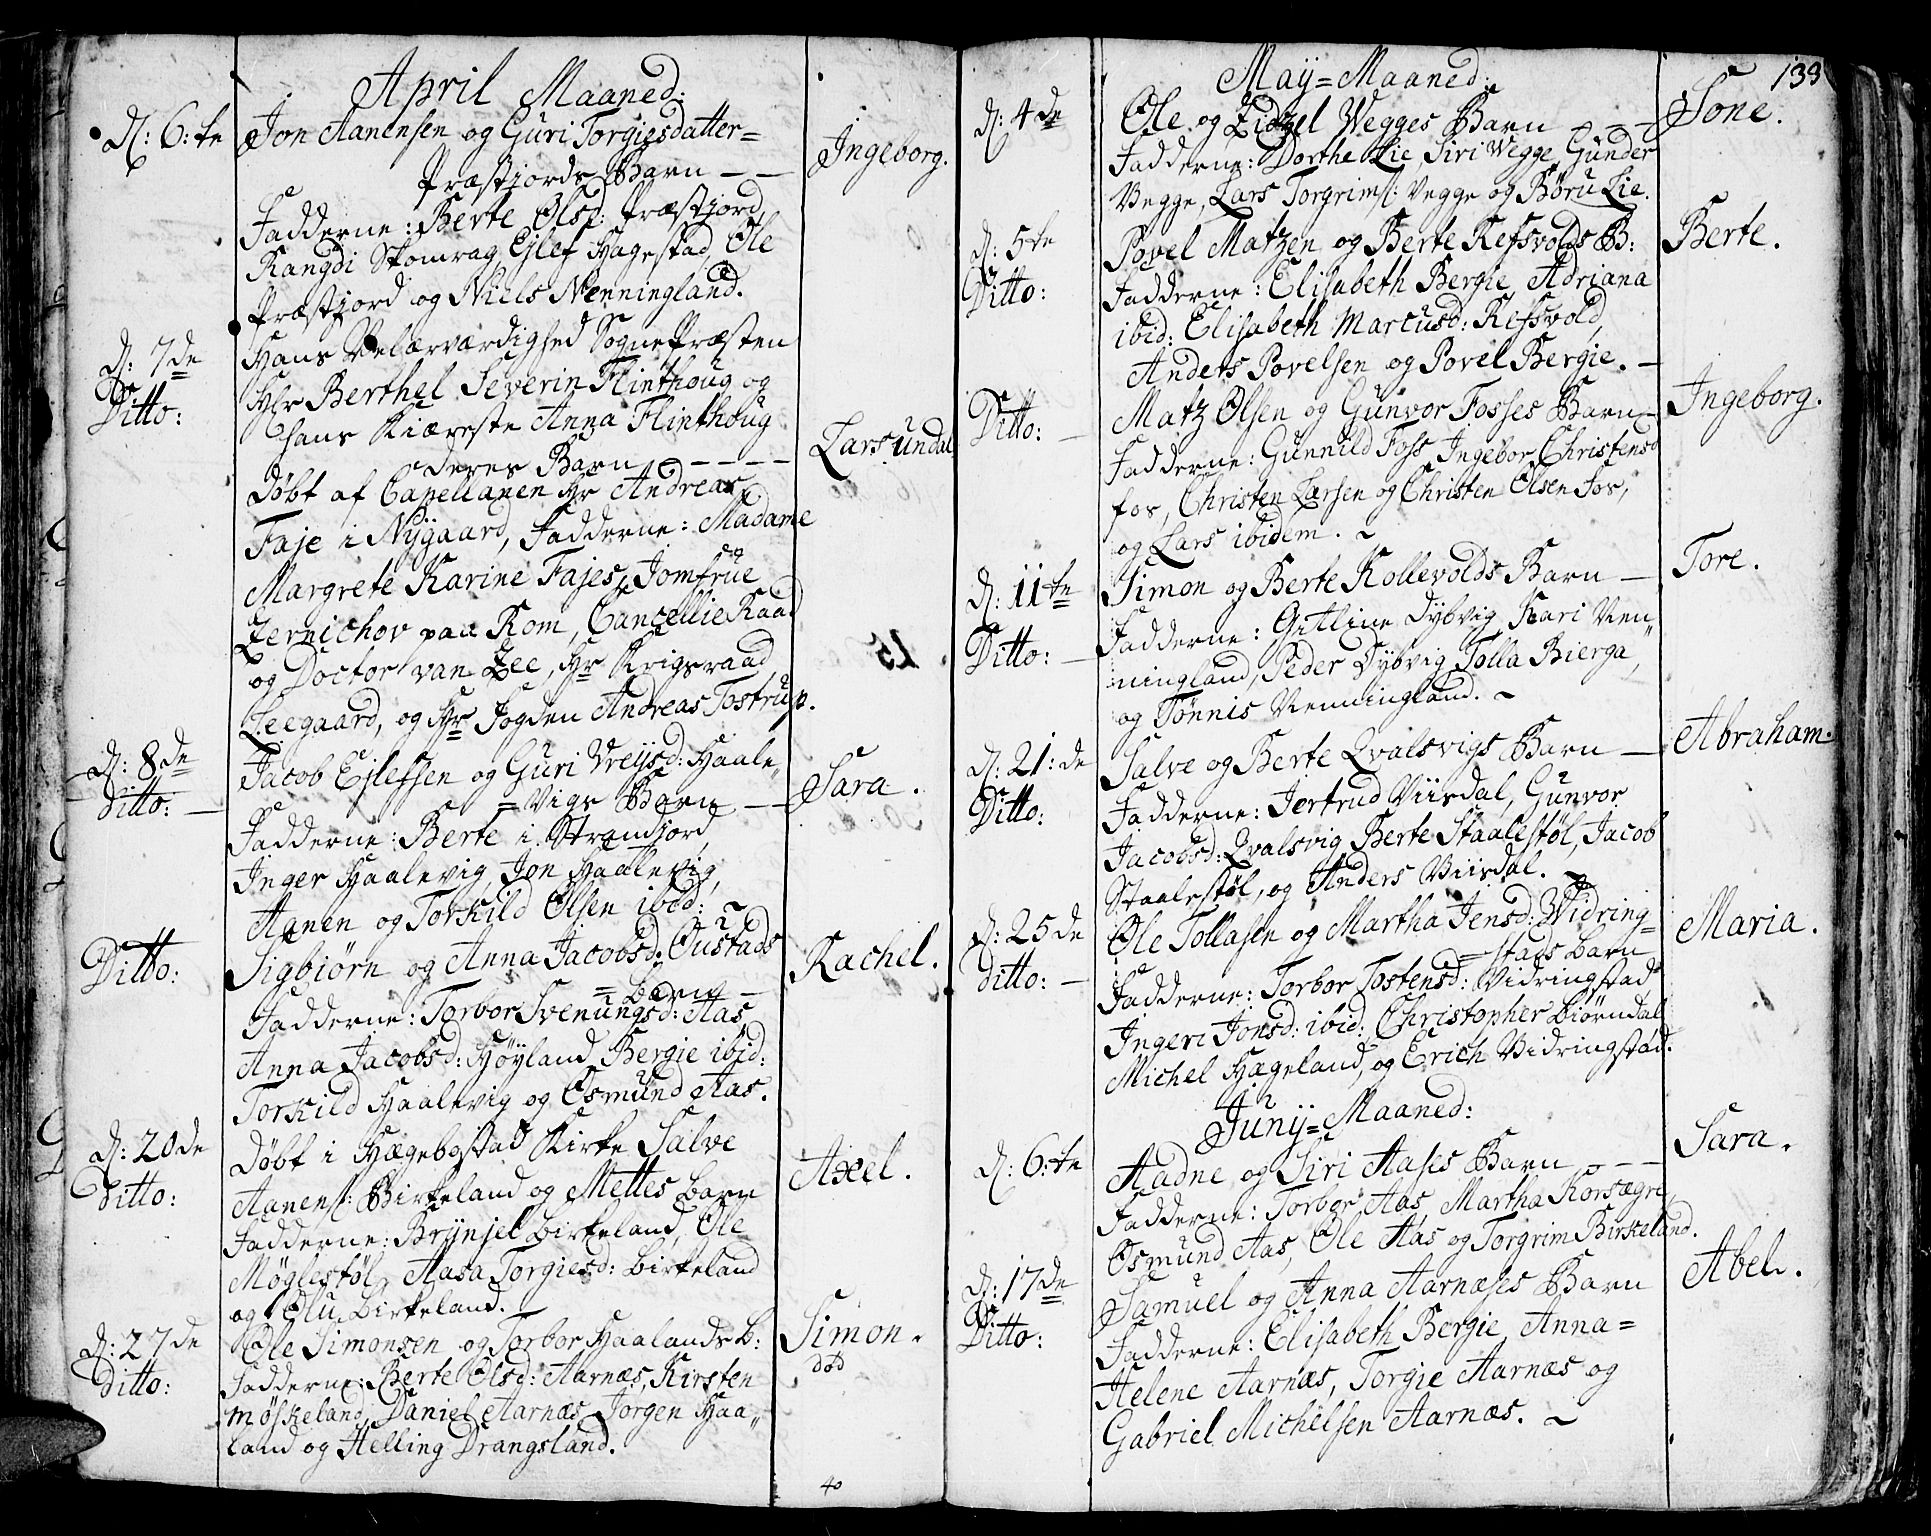 April Maaned:
D: 6:te
Jon Aanensen og Guri Torgiesdatter=
Præstjords Barn — —
Ingeborg.
Fadderne: Berte Olsd: Præstjord,
Rangdi Skomrag, Ejlef Hagestad, Ole
Præstjord og Niels Wenningland.
D: 7de
Ditto:
Hans Velærværdighed SognePræsten
Hr Berthel Severin Flinthoug og
hans Kiæreste Anna Flinthoug
deres Barn — — — —
Lars Undal
Døbt af Capellanen Hr Andreas
Faje i Nygaard, Fadderne: Madame
Margrete Karine Fajes, Jomfrue
Zernichov paa Rom, CancellieRaad
og Doctor van Zee, Hr Krigsraad
Leegaard, og Hr Fogden Andreas Tostrup.
D: 8de
Ditto: —
Jacob Ejlefsen og Guri Vreysd: Haale„
=Vigs Barn —
Sara.
Fadderne: Berte i Strandjord,
Inger Haalevig, Jon Haalevig,
Aanen og Torkild Olsen ibid: ~
Ditto:
Sigbiørn og Anna Jacobsd: Oustads
=barn —
Rachel.
Fadderne: Torbor Svenungsd: Aas
Anna Jacobsd: Høyland, Bergie ibid:
Torkild Haalevig og Osmund Aas.
D: 20de
Ditto:
Døbt i Hægebostad Kirke Salve
Aanens: Birkeland og Mettes barn
Axel.
Fadderne: Brynjel birkeland, Ole
Møglestøl, Aasa Torgiesd: birkeland
og Olu birkeland. —
D: 27de
Ditto:
Ole Simonsen og Torbor Haalands b:
Simon.
død
Fadderne: Berte Olsd: Aarnæs, Kirsten
Møskeland, Daniel Aarnæs, Jørgen Haa„
land og Helling Drangsland.
40
139
May=Maaned:
D: 4de
Ole og Zidzel Vegges Barn — — —
Tone.
Fadderne: Dorthe Lie, Siri Vegge, Gunder
Vegge, Lars Torgrims: Vegge og Børu Lie.
D: 5te
Ditto:
Povel Matzen og Berte Refsvolds B:
Berte.
Fadderne: Elisabeth Bergie, Adriana
ibid: Elisabeth Marcusd: Refsvold,
Anders Povelsen og Povel Bergie. —
Ditto: —
Matz Olsen og Gunvor Fosses Barn —
Ingeborg.
Fadderne: Gunnild Foss, Ingebor Christensd
fos, Christen Larsen og Christen Olsen Fos,
og Lars ibidem. ~
D: 11te
Ditto: —
Simon og Berte Kollevolds Barn —
Tore.
Fadderne: Gitline Dybvig, Kari Ven„
ningland, Peder Dybvig, Tolla Bierga,
og Tønnis Venningland. ~
D: 21:de
Ditto:
Salve og Berte Qvalsvigs Barn —
Abraham.
Fadderne: Jertrud Viisdal, Gunvor
Jacobsd: Qvalsvig, Berte Staalestøl, Jacob
Staalestøl, og Anders Viisdal. ~
D: 25de
ditto: —
Ole Tollasen og Martha Jensd: Widring=
=stads barn
Maria.
Fadderne: Torbor Tostensd: Vidringstad
Ingeri Jonsd: ibid: Christopher biørndal
Michel Hægeland, og Erich Vidringstad.
Juny=Maaned:
D: 6:te
Aadne og Siri Aases Barn — —
Sara.
Fadderne: Torbor Aas, Martha Korsægre,
Osmund Aas, Ole Aas og Torgrim Birkeland.
D: 17de
Ditto:
Samuel og Anna Aarnæses Barn
Abel.
Fadderne: Elisabeth Bergie, Anna=
Helene Aarnæs, Torgie Aarnæs og
Gabriel Michelsen Aarnæs. ~